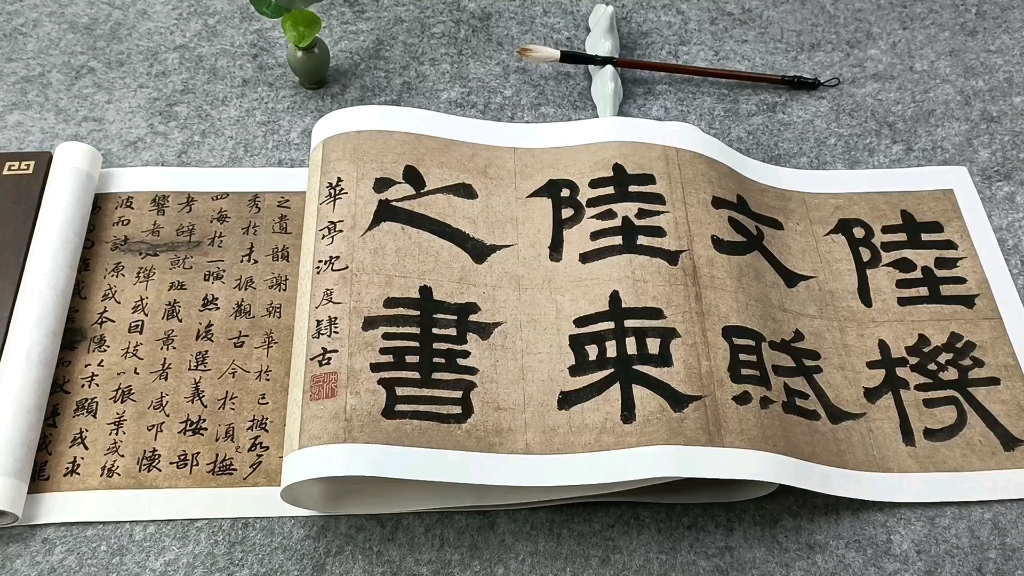 陸機
文賦
陸柬
之書
華亭沈度隸古
之遺韻謝朝華於已披啓夕
秀於未振觀古今於須撫
四海於一瞬然後選義按部
考辭就班藏景者咸叩懷
響者必彈或因枝以振葉或緣
波而討源或本隱以末顯或求